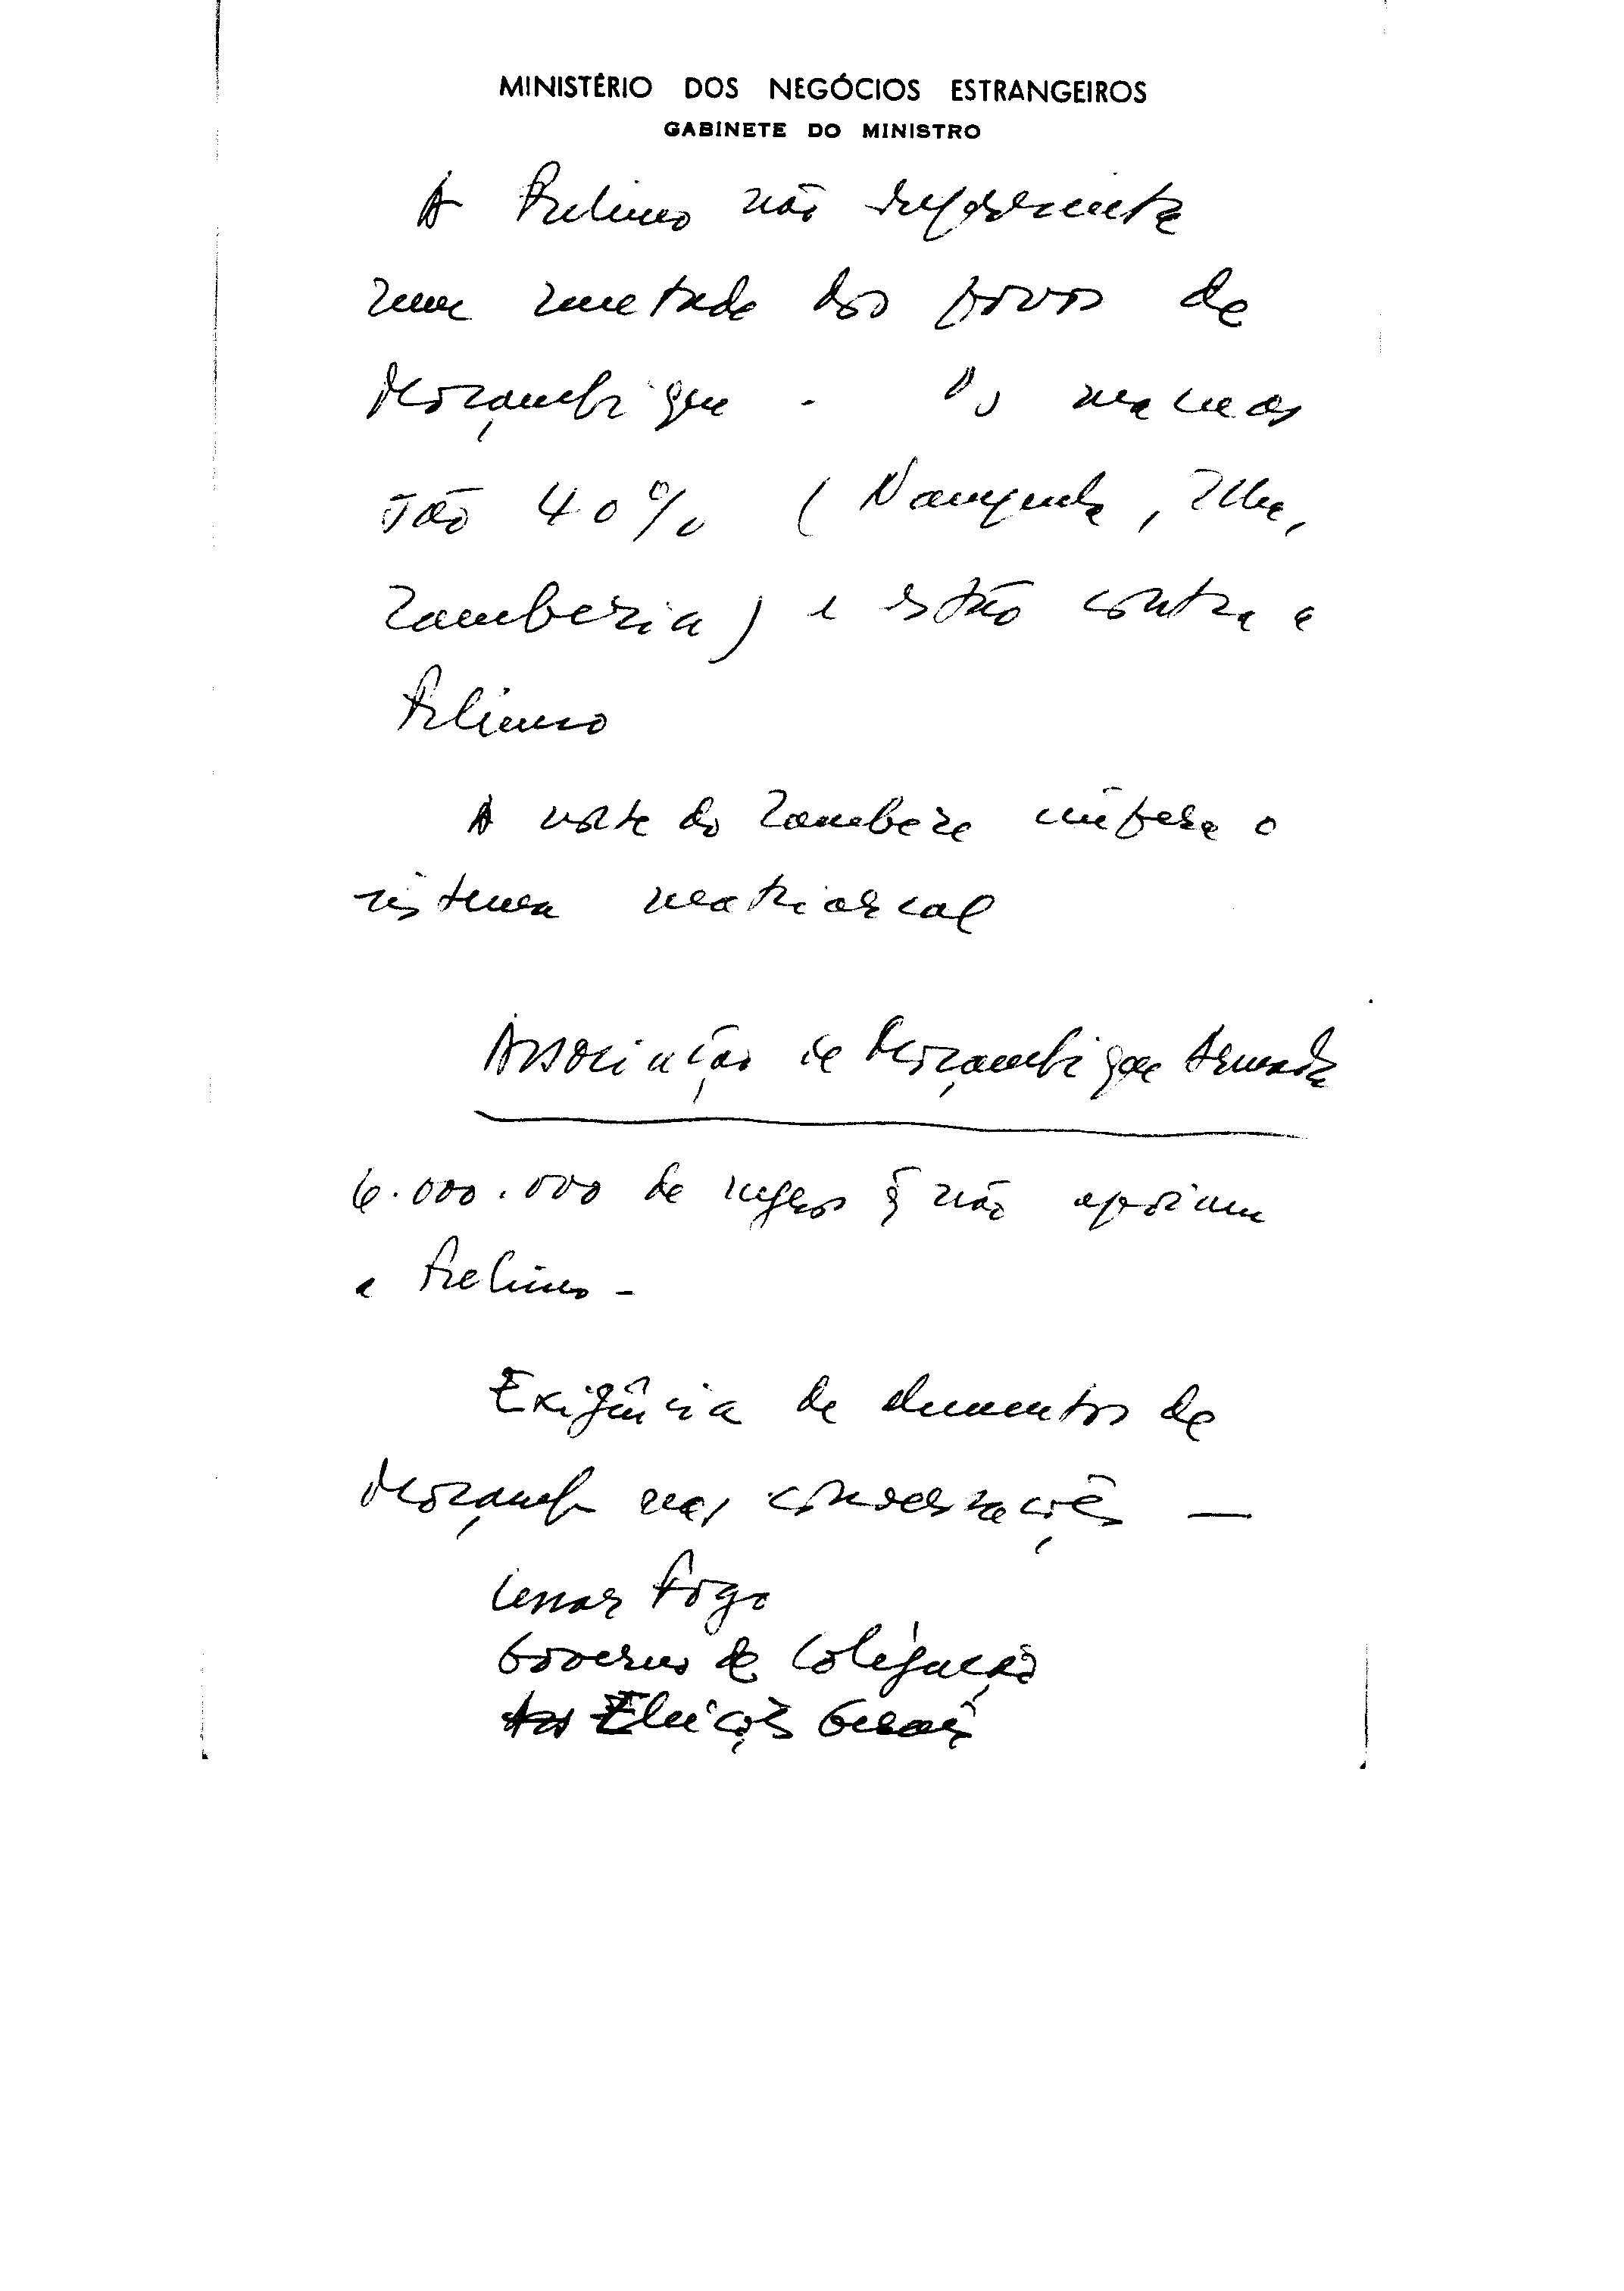 MINISTÉRIO DOS NEGÓCIOS ESTRANGEIROS
GABINETE DO MINISTRO
A Frelimo não representa
nem metade dos povos de
Moçambique. Os macuas
são 40% (Nampula, Ilha,
Zambezia) e estão contra a
Frelimo
A norte do Zambeze impera o
sistema matriarcal
Associação de Moçambique Armada
6.000.000 de negros q̃ não apoiam
a Frelimo -
Exigência de elementos de
Moçamb nas conversações —
Cessar fogo
Governo de Coligação
Eleições Gerais